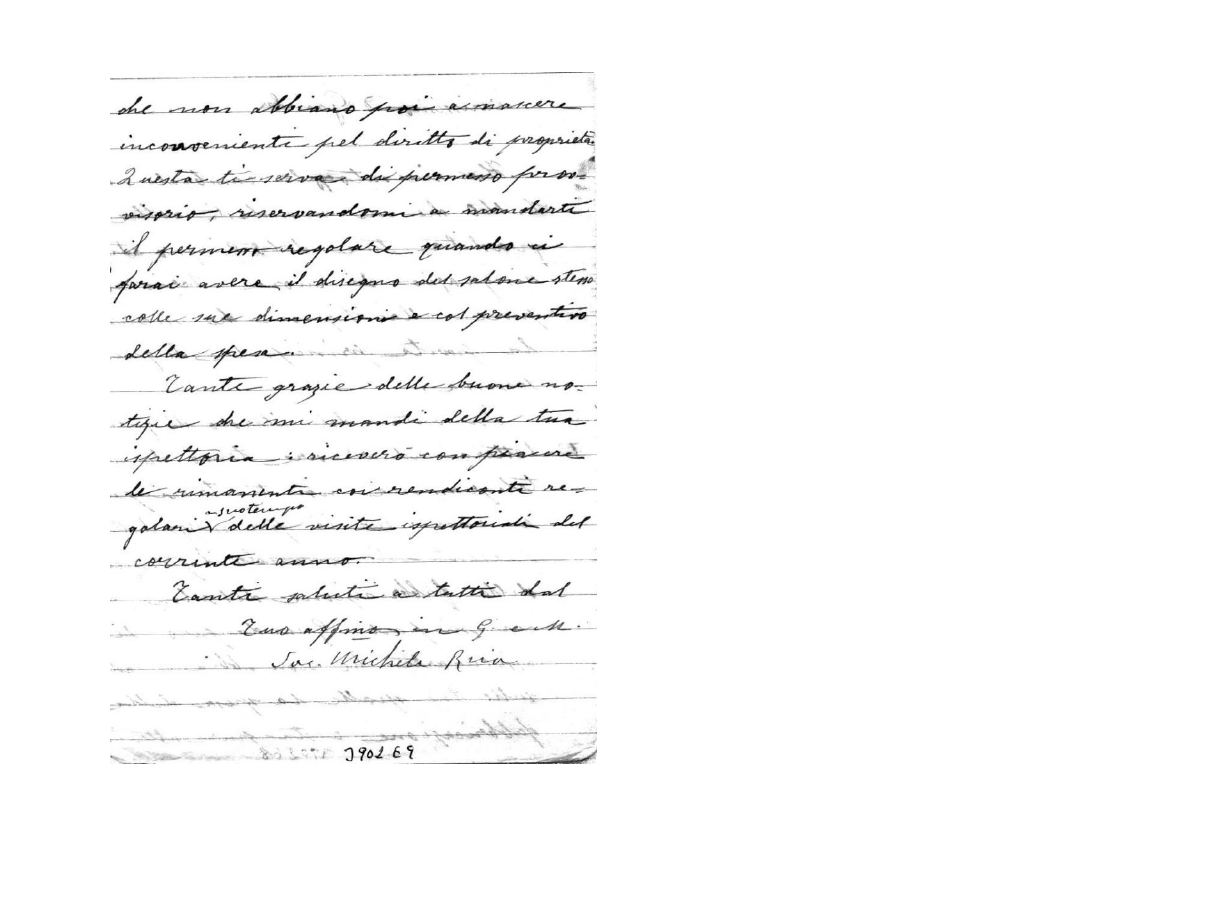 che non abbiano poi a nascere
inconvenienti pel diritto di proprietà.
Questa ti serva di permesso prov=
visorio, riservandomi a mandarti
il permesso regolare quando ci
farai avere il disegno del salone stesso
colle sue dimensioni e col preventivo
della spesa.
Tante grazie delle buone no=
tizie che mi mandi della tua
ispettoria: riceverò con piacere
le rimanenti coi rendiconti re=
a suo tempo
golari delle visite ispettoriali del
corrente anno.
Tanti saluti a tutti dal
Tuo affmo in G. e M.
Sac. Michele Rua
3902 E9